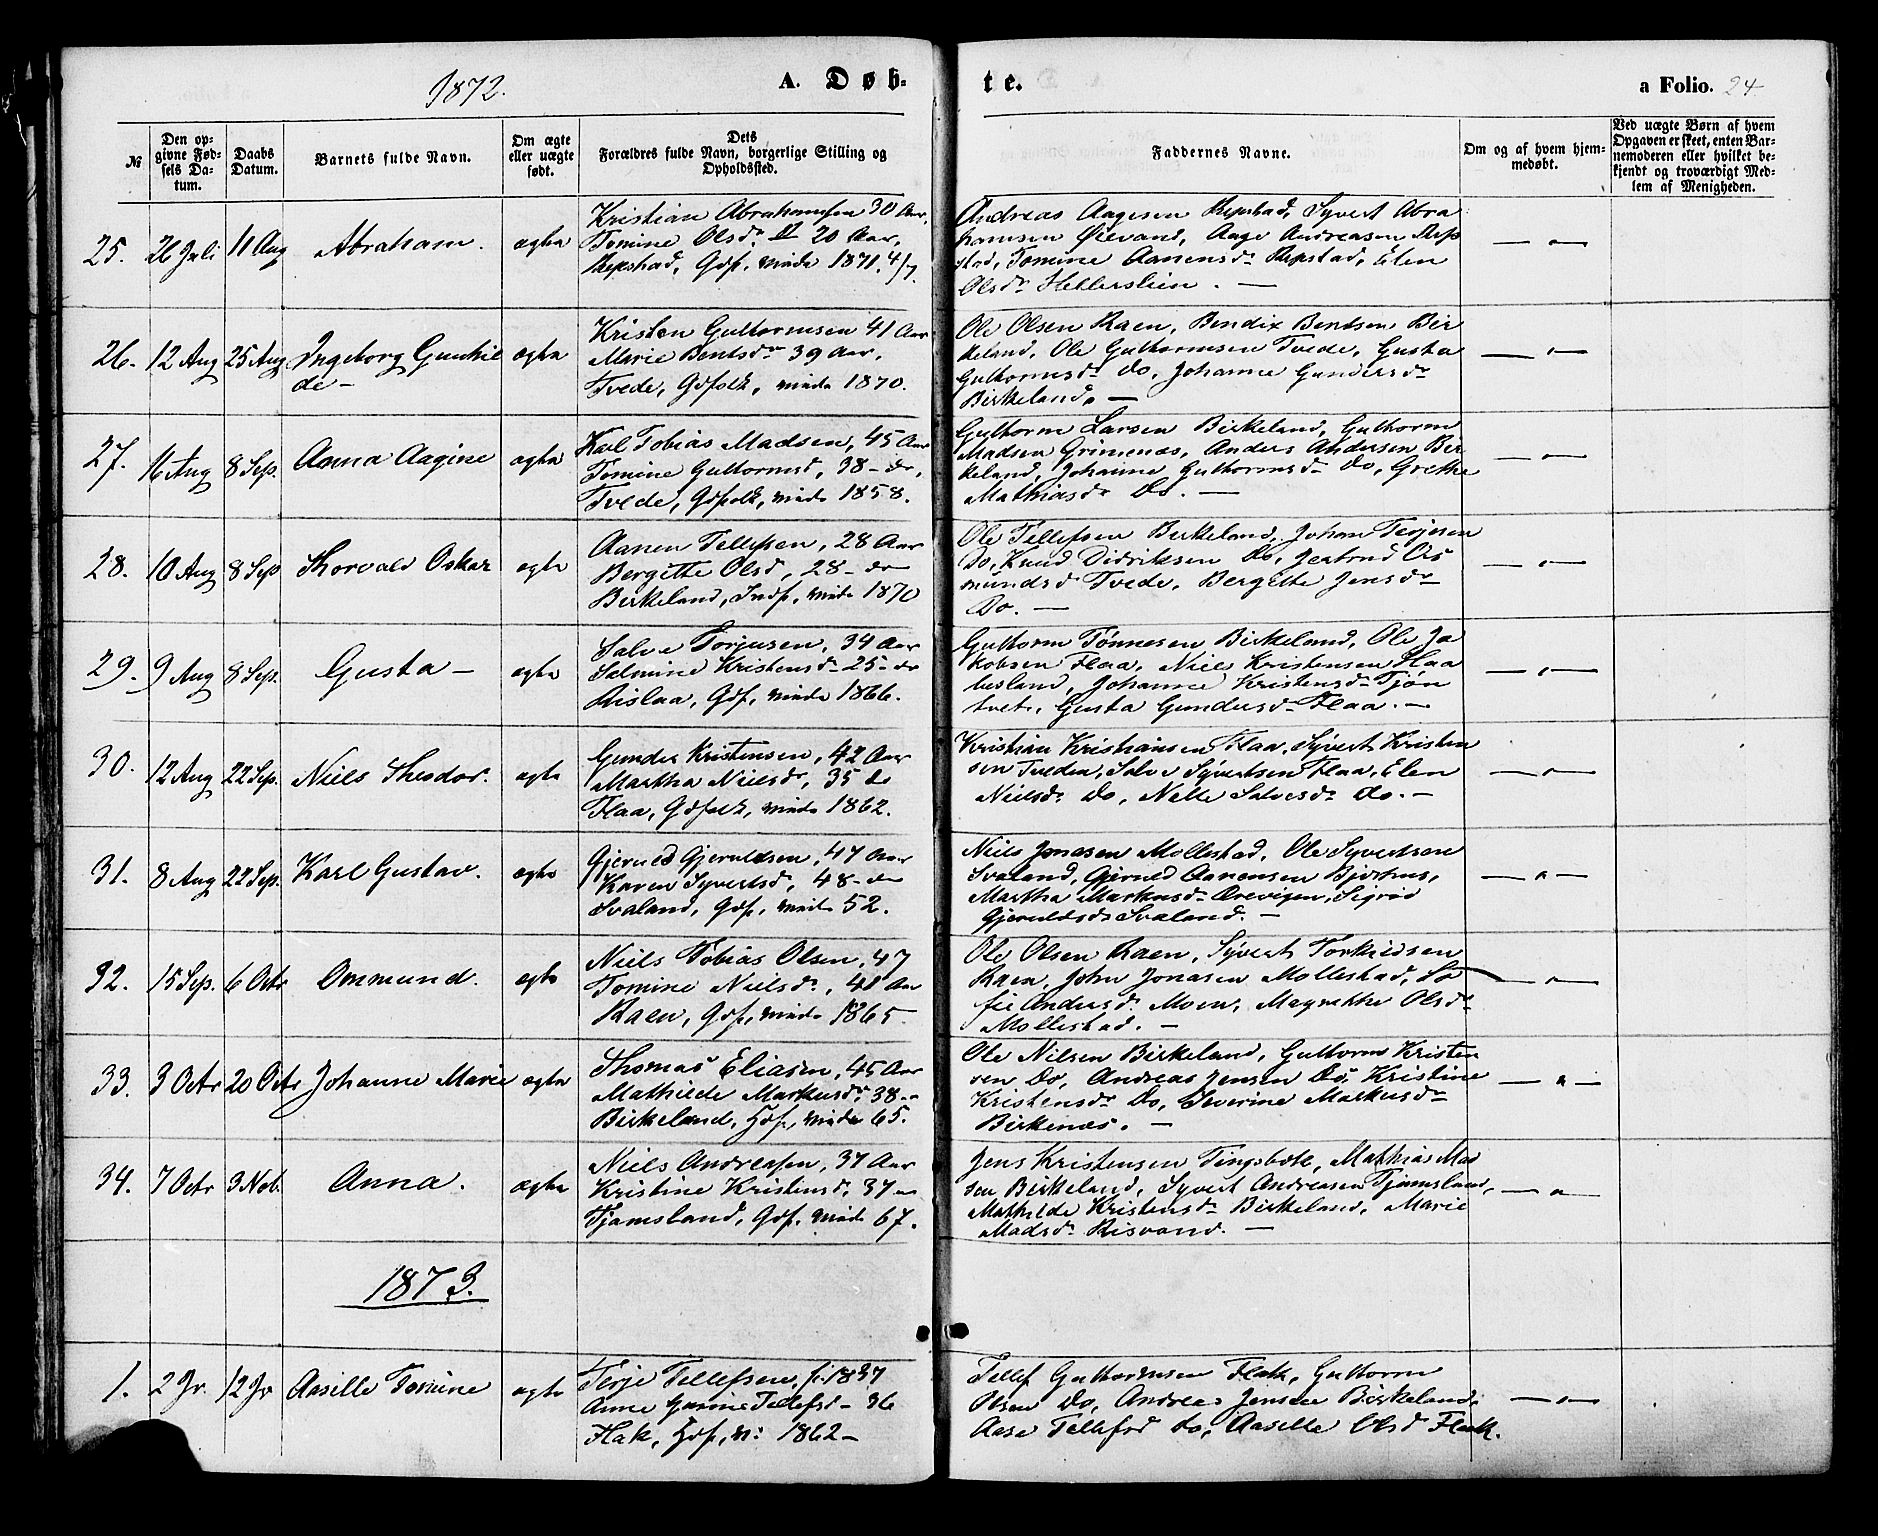 1872.
A. Døb-
te.
a Folio. 24
№
Den opgivne Fødsels Datum.
Daabs Datum.
Barnets fulde Navn.
Om ægte eller uægte født.
Dets Forældres fulde Navn, borgerlige Stilling og Opholdssted.
Faddernes Navne.
Om og af hvem hjemmedøbt.
Ved uægte Børn af hvem Opgaven er skeet, enten Barnemoderen eller hvilket bekjendt og troværdigt Medlem af Menigheden.
25. 26 Juli 11 Aug Abraham. ægta
Kristian Abrahamsen 30 Aar,
Tomine Olsdr 20 Aar,
Repstad, Gdf. viede 1871, 4/7.
Andreas Aagesen Repstad, Syvert Abra
hamsen Øievand, Aage Andreasen Rep
stad, Tomine Aanensdr Repstad, Elen
Olsdr Hellerslien. —
26. 12 Aug 25 Aug Ingeborg Gunhil
de — ægta
Kristen Guttormsen 41 Aar
Marie Bentsdr 39 Aar,
Tvede, Gdfolk, viede 1870.
Ole Olsen Raen, Bendix Bentsen Bir
keland, Ole Guttormsen Tvede, Gusta
Guttormsdr Do, Johanne Gundersdr
Birkeland. —
27. 16 Aug 8 Sep. Anna Aagine ægta
Karl Tobias Madsen, 45 Aar
Tomine Guttormsd, 38 - do,
Tvede, Gdfolk, viede 1858.
Guttorm Larsen Birkeland, Guttorm
Madsen Grimenæs, Anders Andersen Bir
keland, Johanne Guttormsdr Do, Grethe
Mathiasdr Do. —
28. 10 Aug 8 Sep Thorvald Oskar ægta
Aanen Tellefsen, 28 Aar
Bergitte Olsd, 28 - do
Birkeland, Indf, viede 1870
Ole Tellefsen Birkeland, Johan Terjesen
Do, Knud Didriksen Do, Jertrud As
mundsd Tvede, Bergitte Jensdr
Do. —
29. 9 Aug 8 Sep. Gusta — ægta
Salve Torjusen, 34 Aar
Salmine Kristensdr 25 - do
Aislaa, Gdf, viede 1866.
Guttorm Tønnesen Birkeland, Ole Ja
kobsen Flaa, Niels Kristensen Haa
besland, Johanne Kristensdr Tjøn
tvet, Gusta Gundersdr Flaa. —
30. 12 Aug 22 Sep. Niels Theodor. ægta
Gunder Kristensen, 42 Aar
Martha Nielsdr, 35 do
Flaa, Gdfolk, viede 1862.
Kristian Kristiansen Flaa, Syvert Kristen
sen Tveden, Salve Syvertsen Flaa, Elen
Nielsdr Do, Nelle Salvesdr Do. —
31. 8 Aug 22 Sep. Karl Gustav. ægta
Gjeruld Gjeruldsen, 47 Aar
Karen Syvertsd, 48 - do
Svaland, Gdf, viede 52.
Niels Jonasen Mollestad, Ole Syvertsen
Svaland, Gjeruld Aanensen Bjorhus,
Martha Markusdr Orevigen, Sigrid
Gjeruldsdr Svaland. —
32. 15 Sep. 6 Octr Ommund. ægta
Niels Tobias Olsen, 47
Tomine Nielsdr, 41 Aar
Raen, Gdf, viede 1865
Ole Olsen Raen, Syvert Torkildsen
Raen, John Jonasen Mollestad, So
fie Andersdr Moen, Magrethe Olsdr
Mollestad. —
33. 3 Octr 20 Octr Johanne Marie ægta
Thomas Eliasen, 45 Aar
Mathilde Markusdr 38 -
Birkeland, Hsf, viede 65.
Ole Nilsen Birkeland, Guttorm Kristen
sen Do, Andreas Jensen Do, Kristine
Kristensdr Do, Severine Markusdr
Birkenæs. —
34. 7 Octr 3 Nob. Anna. ægta
Niels Andreasen, 37 Aar
Kristine Kristensd, 37 -
Tjamsland, Gdf, viede 67.
Jens Kristensen Tingsbok, Mathias Mad
sen Birkeland, Syvert Andreasen Tjamsland,
Mathilde Kristensdr Birkeland, Marie
Madsdr Risvand. —
1873.
1. 2 Jr. 12 Jr Aasille Tomine ægta
Terje Tellefsen, f. 1837
Anne Gurine Tellefsd - 36
Flak, Hsf, v: 1862 -
Tellef Guttormsen Flak, Guttorm
Olsen Do, Andreas Jensen Birkeland,
Aase Tellefsd do, Aasille Olsd Flak.